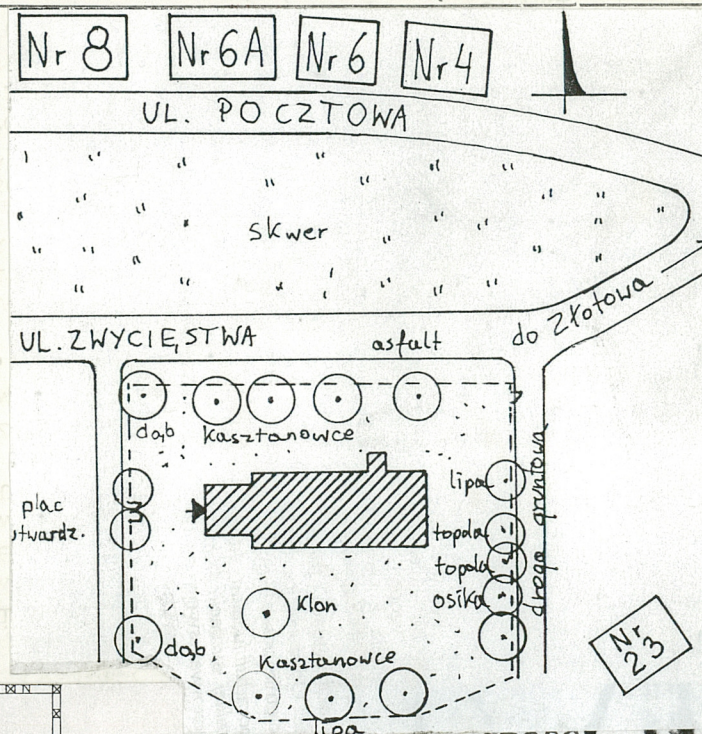 Nr 8
Nr 6A
Nr 6
Nr 4
UL. POCZTOWA
skwer
UL. ZWYCIĘSTWA
asfalt
do Złotowa
dąb
kasztanowce
lipa
plac
utwardz.
topola
topola
droga gruntowa
osika
Klon
dąb
Kasztanowce
lipa
Nr
23